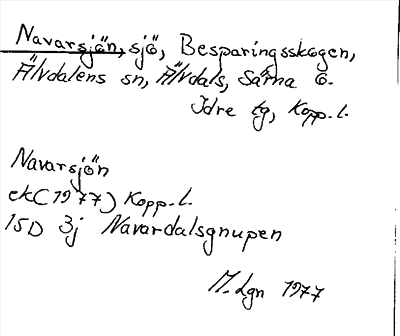 Navarsjön, sjö, Besparingsskogen,
Älvdalens sn, Älvdals, Särna o.
Idre tg, Kopp.l.
Navarsjön
ek (1977) Kopp.l.
15D 3j Navardalsgnupen
M.Lgn 1977